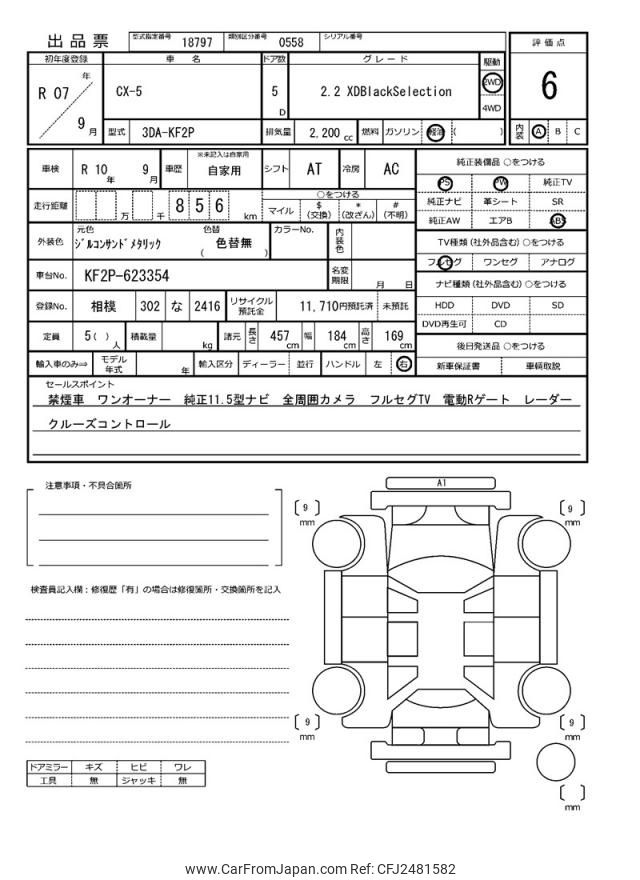 出品票
型式指定番号 18797 類別区分番号 0558 シリアル番号
評価点
6
内装 A B C
初年度登録 車名 ドア数 グレード 駆動
R 07 年 9 月
CX-5
5 D
2.2 XDBlackSelection
2WD
4WD
型式 3DA-KF2P 排気量 2,200 cc 燃料 ガソリン 軽油 ( )
車検 R 10 年 9 月 車歴 ※未記入は自家用 自家用 シフト AT 冷房 AC
走行距離 万 千 8 5 6 km
○をつける
マイル $ (交換) * (改ざん) # (不明)
外装色 元色 ジルコンサンドメタリック 色替 ( 色替無 ) カラーNo. 内装色
車台No. KF2P-623354 名変期限 月 日
登録No. 相模 302 な 2416 リサイクル預託金 11,710円預託済 未預託
定員 5( ) 人 積載量 kg 諸元 長さ 457 cm 幅 184 cm 高さ 169 cm
輸入車のみ⇒ モデル年式 年 輸入区分 ディーラー 並行 ハンドル 左 右
純正装備品 ○をつける
PS PW 純正TV
純正ナビ 革シート SR
純正AW エアB ABS
TV種類(社外品含む)○をつける
フルセグ ワンセグ アナログ
ナビ種類(社外品含む)○をつける
HDD DVD SD
DVD再生可 CD
後日発送品 ○をつける
新車保証書 車輌取説
セールスポイント
禁煙車 ワンオーナー 純正11.5型ナビ 全周囲カメラ フルセグTV 電動Rゲート レーダー
クルーズコントロール
注意事項・不具合箇所
検査員記入欄:修復歴「有」の場合は修復箇所・交換箇所を記入
ドアミラー キズ ヒビ ワレ
工具 無 ジャッキ 無
A1
9 mm
9 mm
9 mm
9 mm
mm
www.CarFromJapan.com Ref: CFJ2481582